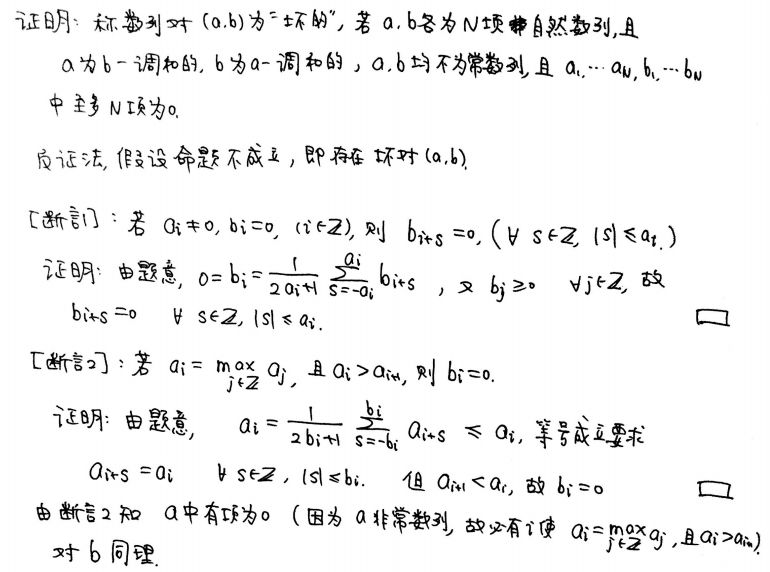 证明: 称数列对 (a,b) 为“坏的”, 若 a,b各为N项自然数列,且
a为b-调和的, b为a-调和的, a,b均不为常数列,且 a₁,…aN, b₁,…bN
中至多N项为0.
反证法, 假设命题不成立, 即存在坏对(a,b).
[断言1]: 若 aᵢ≠0, bᵢ=0, (i∈Z), 则 bᵢ₊ₛ=0, (∀ s∈Z, |s|≤aᵢ.)
证明: 由题意, 0=bᵢ=\frac{1}{2aᵢ+1} \sum_{s=-aᵢ}^{aᵢ} bᵢ₊ₛ, 又 bⱼ≥0 ∀j∈Z, 故
bᵢ₊ₛ=0 ∀ s∈Z, |s|≤aᵢ. □
[断言2]: 若 aᵢ=\max_{j∈Z} aⱼ, 且 aᵢ>aᵢ₊₁, 则 bᵢ=0.
证明: 由题意, aᵢ=\frac{1}{2bᵢ+1} \sum_{s=-bᵢ}^{bᵢ} aᵢ₊ₛ ≤ aᵢ, 等号成立要求
aᵢ₊ₛ=aᵢ ∀ s∈Z, |s|≤bᵢ. 但 aᵢ₊₁<aᵢ, 故 bᵢ=0 □
由断言2知 a中有项为0 (因为a非常数列, 故必有i使 aᵢ=\max_{j∈Z} aⱼ, 且aᵢ>aᵢ₊₁).
对 b 同理.